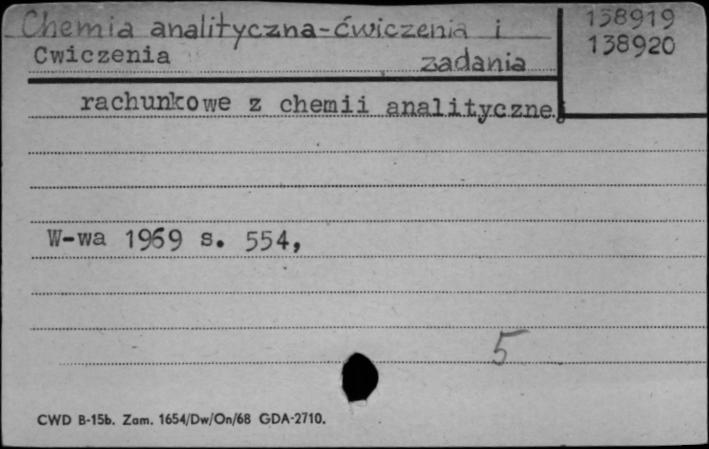 Chemia analityczna-ćwiczenia i zadania
138919
138920
Cwiczenia
rachunkowe z chemii analitycznej
W-wa 1969 s. 554,
5
CWD B-15b. Zam. 1654/Dw/On/68 GDA-2710.